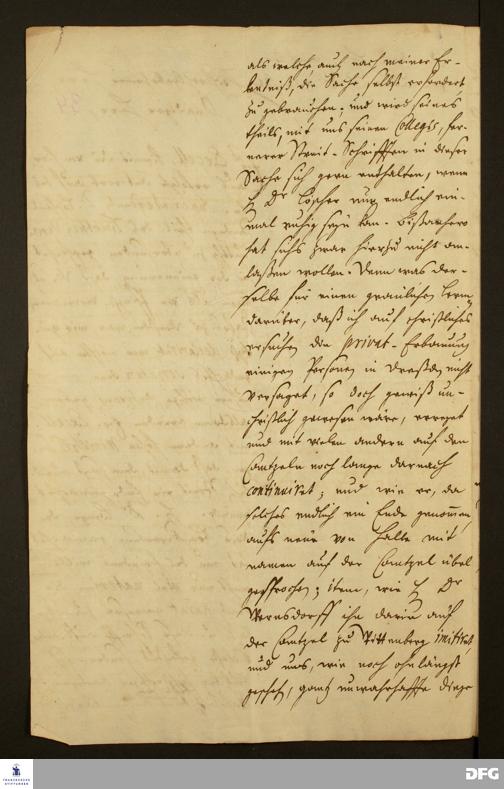 als welche auch nach meiner Er-
kentniß, die Sache selbst erfordert
zu gebrauchen; und wird seines
theils, mit uns seinen Collegis, fer-
nerer Streit-Schrifften in dieser
Sache sich gern enthalten, wenn
H Dr Löscher nur endlich ein-
mal ruhig seyn kan. Bißanhero
hat sichs zwar hierzu nicht an-
laßen wollen. Denn was der-
selbe für einen greulichen Lerm
darüber, daß ich auf christliches
ersuchen die privat-Erbauung
einigen Personen in Dreßden nicht
versaget, so doch gewiß un-
christlich gewesen wäre, erreget
und mit vielen andern auf den
Cantzeln noch lange darnach
continuiret; und wie er, da
solches endlich ein Ende genommen,
aufs neue von Halle mit
namen auf der Cantzel übel
gesprochen; item, wie H Dr
Wernsdorff ihn darin auf
der Cantzel zu Wittenberg imitiret,
und uns, wie noch ohnlängst
gesch, gantz unwahrhaffte dinge
FRANCKESCHE
STIFTUNGEN
DFG